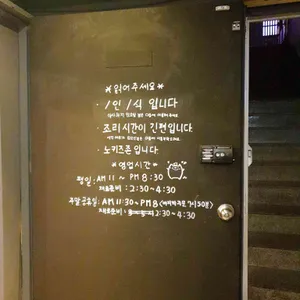 ※읽어주세요※
· 1인 1식 입니다
· 조리시간이 긴편입니다.
· 노키즈존입니다
※영업시간※
평일 : AM 11 ~ PM 8:30
재료준비 : 2:30~4:30
주말공휴일 : AM 11:30~PM8
재료준비 : 2:30~4:30